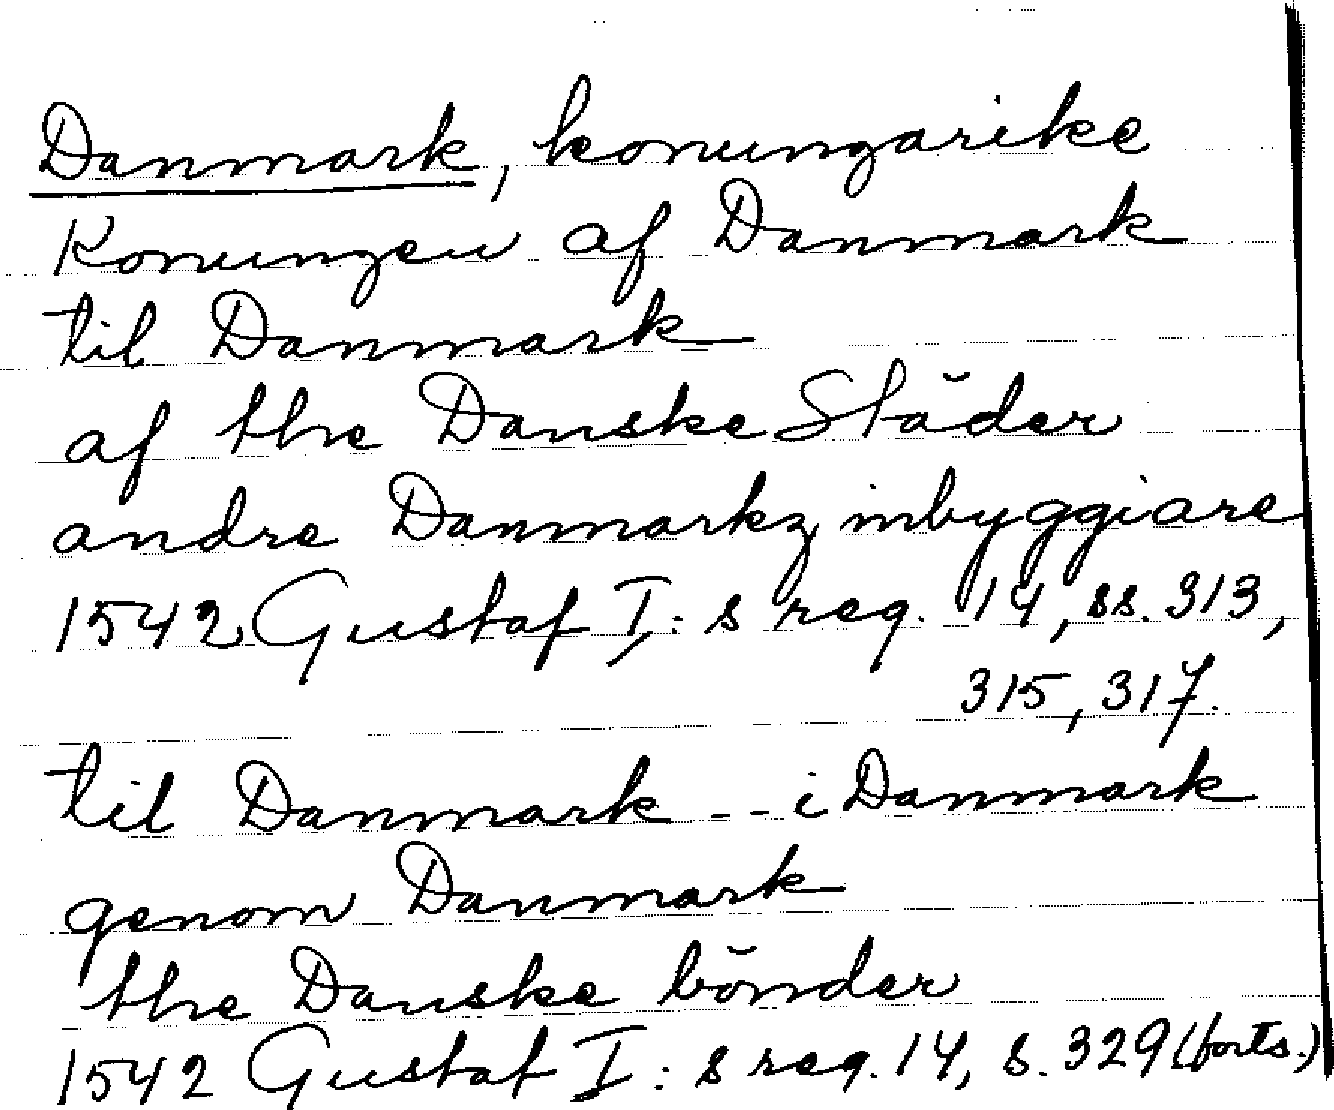 Danmark, konungarike
Konungen af Danmark
til Danmark
af the Danske Städer
andre Danmarkz inbyggiare
1542 Gustaf I:s reg. 14, ss. 313,
315, 317.
til Danmark -- i Danmark
genom Danmark
the Danske bönder
1542 Gustaf I:s reg. 14, s. 329 (forts.)